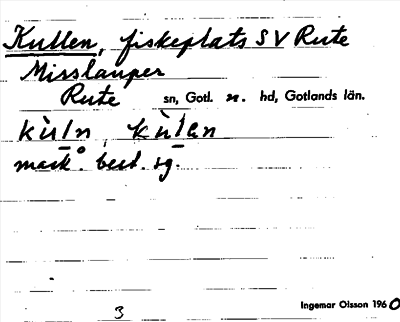 Kullen, fiskeplats SV Rute
Misslauper
Rute sn, Gotl. n. hd, Gotlands län.
kùln, kùlen
mask. best. sg.
3
Ingemar Olsson 1960